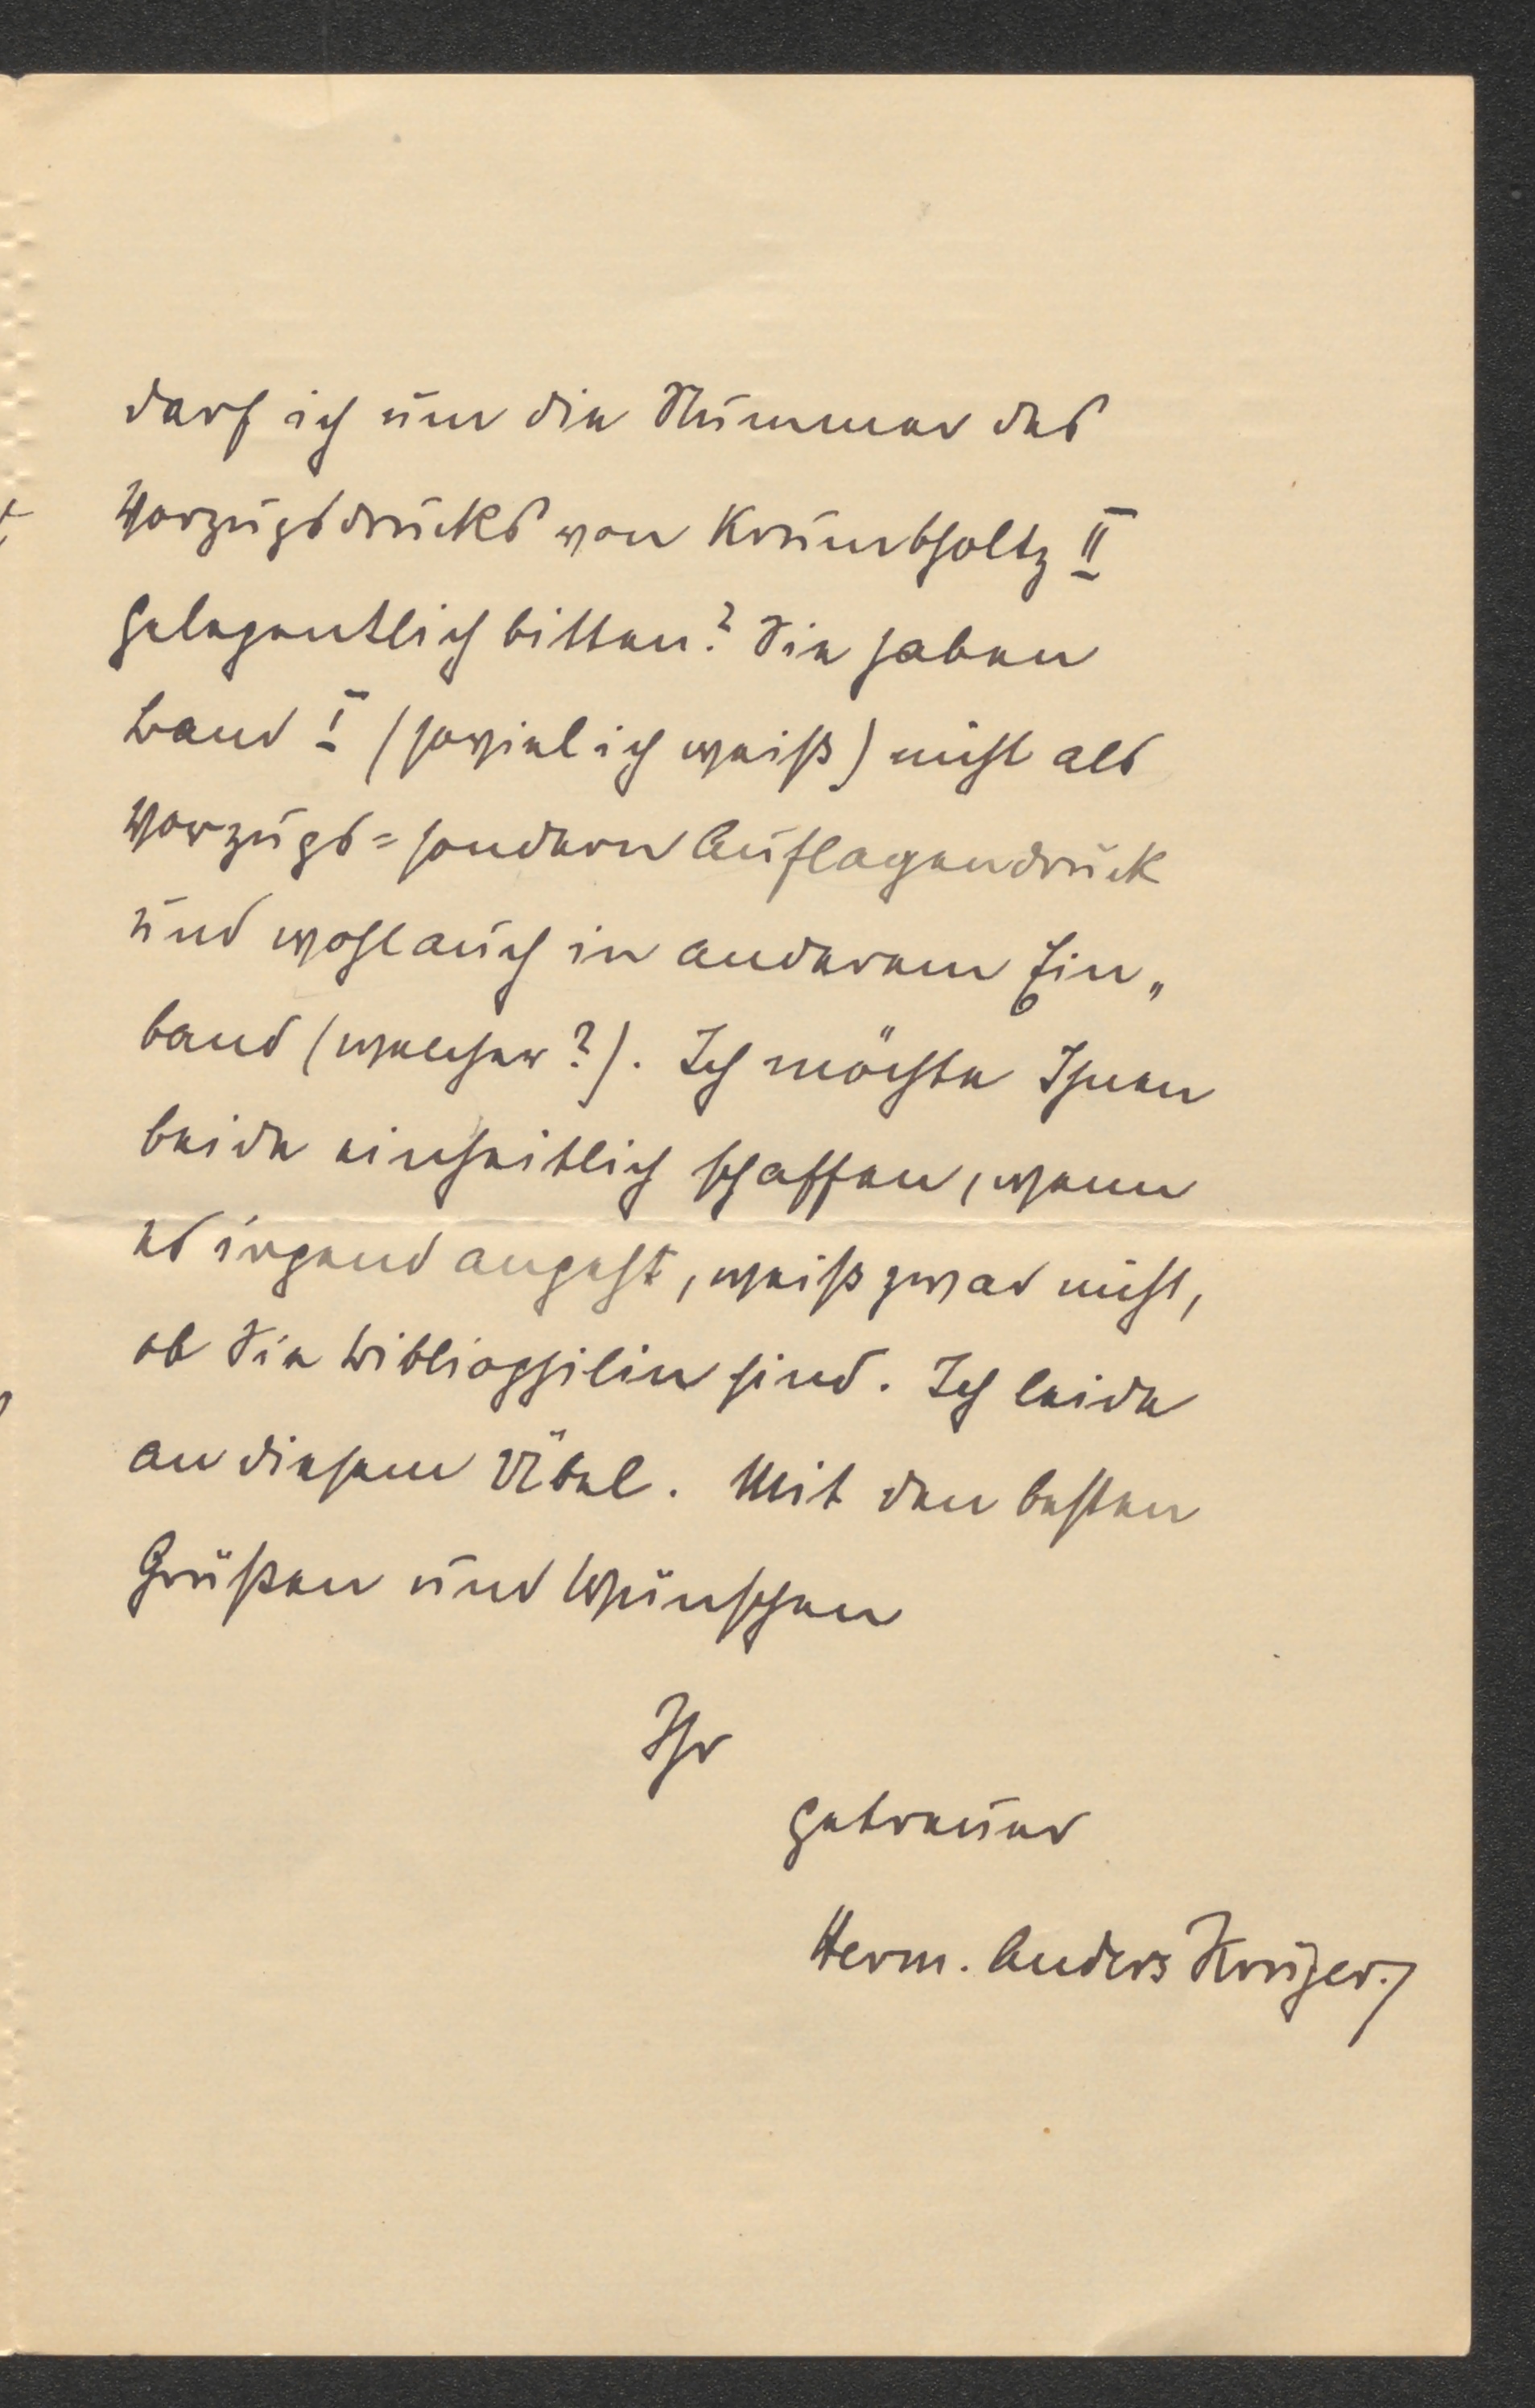 darf ich um die Nummer des
Vorzugsdrucks von Krumbholtz II
gelegentlich bitten? Sie haben
Band I (soviel ich weiß) nicht als
Vorzugs= sondern Auflagendruck
und wohl auch in anderem Ein„
band (welcher?). Ich möchte Ihnen
beide einheitlich schaffen, wenn
es irgend angeht, weiß zwar nicht,
ob Sie bibliophilin sind. Ich leide
an diesem Übel. Mit den besten
Grüßen und Wünschen
Ihr
getreuer
Herm. Anders Krüger.